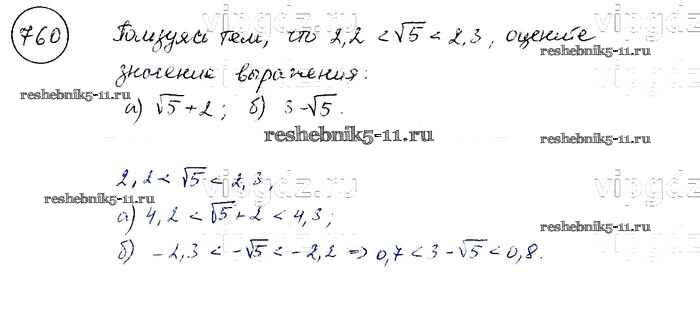 760 Пользуясь тем, что 2,2 < √5 < 2,3, оцените
значение выражения:
reshebnik5-11.ru
а) √5 + 2; б) 3 - √5.
reshebnik5-11.ru
reshebnik5-11.ru
vipgdz.ru
2,2 < √5 < 2,3,
vipgdz.ru
reshebnik5-11.ru
а) 4,2 < √5 + 2 < 4,3;
reshebnik5-11.ru
б) -2,3 < -√5 < -2,2 => 0,7 < 3 - √5 < 0,8.